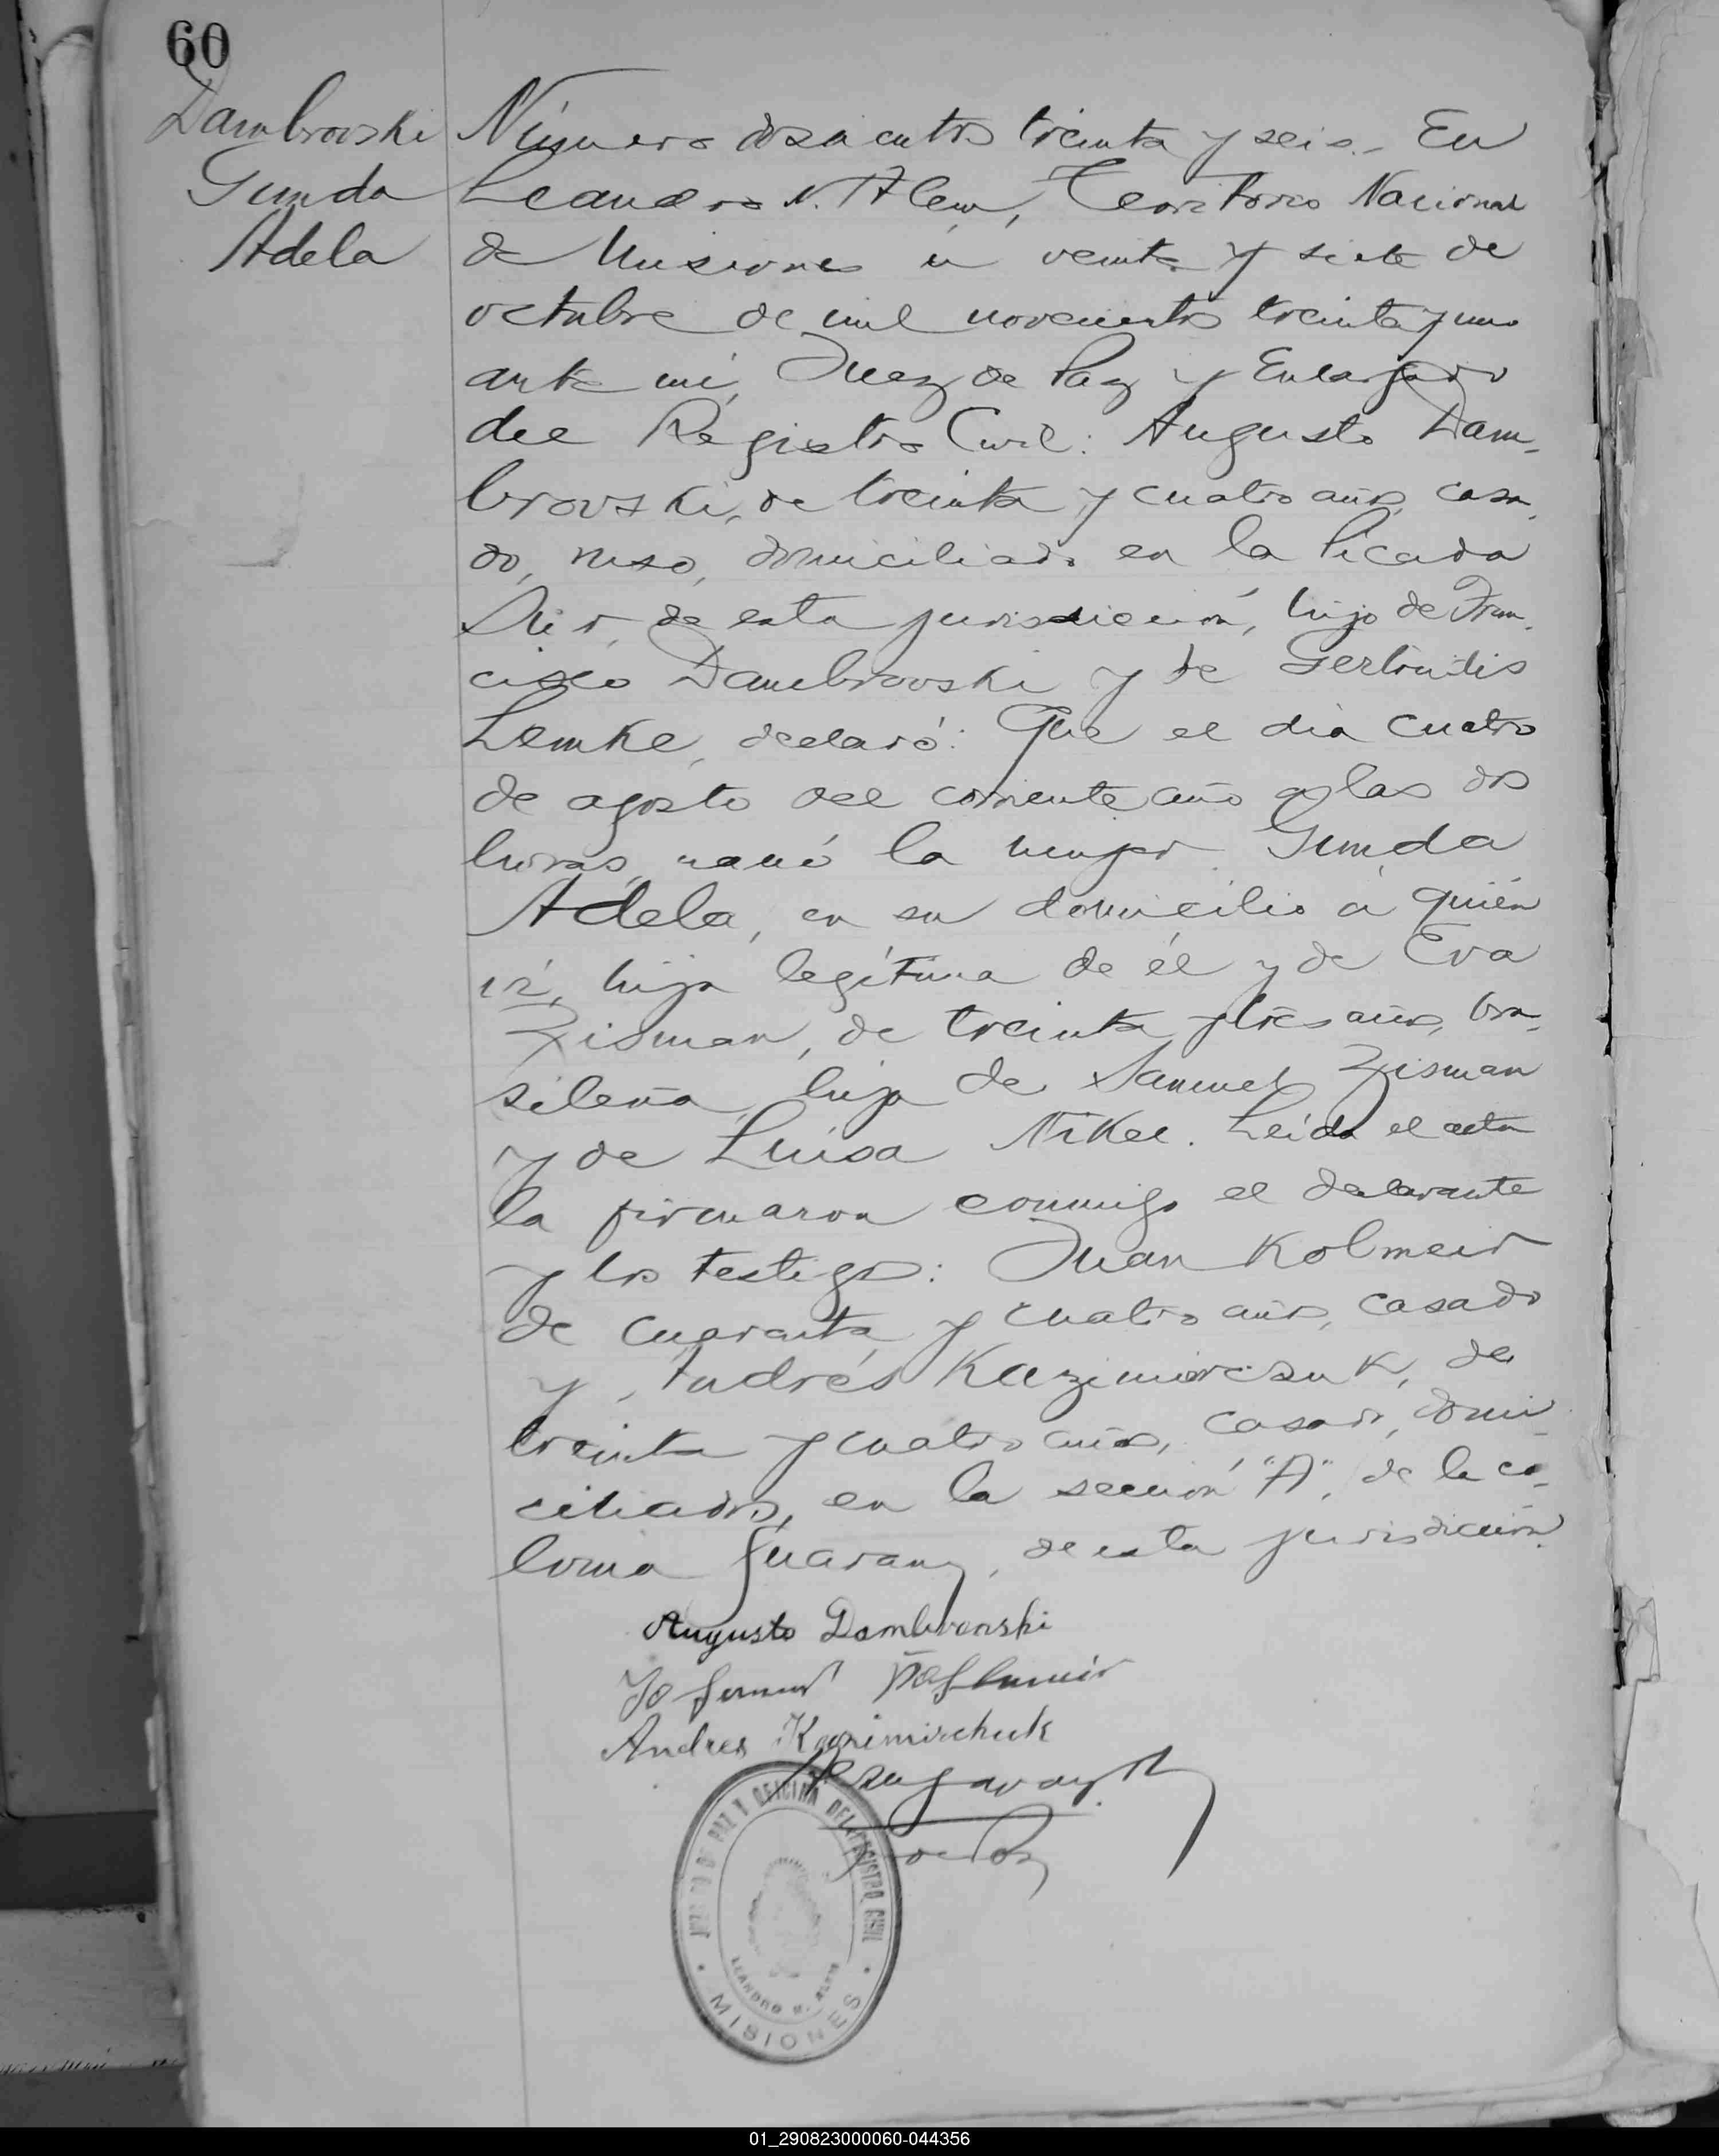 60
Dambrovski
Gunda
Adela
Número doscientos treinta y seis.- En
Leandro N. Alem, Territorio Nacional
de Misiones á veinte y siete de
octubre de mil novecientos treinta y uno
ante mi, Juez de Paz y Encargado
del Registro Civil: Augusto Dam-
brovski, de treinta y cuatro años, casa-
do, ruso, domiciliado en la Picada
Sur, de esta jurisdicción, hijo de Fran-
cisco Dambrovski y de Gertrudis
Lemke, declaró: Que el dia cuatro
de agosto del corriente año a las dos
horas, nació la mujer Gunda
Adela, en su domicilio á quién
ví, hija legítima de él y de Eva
Zisman, de treinta y tres años, bra-
sileña, hija de Samuel Zisman
y de Luisa Nikel. Leida el acta
la firmaron conmigo el declarante
y los testigos: Juan Kolmeir
de cuarenta y cuatro años, casado
y Andrés Kazimierczuk, de
treinta y cuatro años, casado, domi-
ciliados, en la sección "A", de la co-
lonia Guarany, de esta jurisdicción.
Augusto Dambrovski
Andres Kazimirchuk
J. de Paz
JUZGADO DE PAZ Y OFICINA DEL REGISTRO CIVIL
LEANDRO N. ALEM
MISIONES
01_290823000060-044356